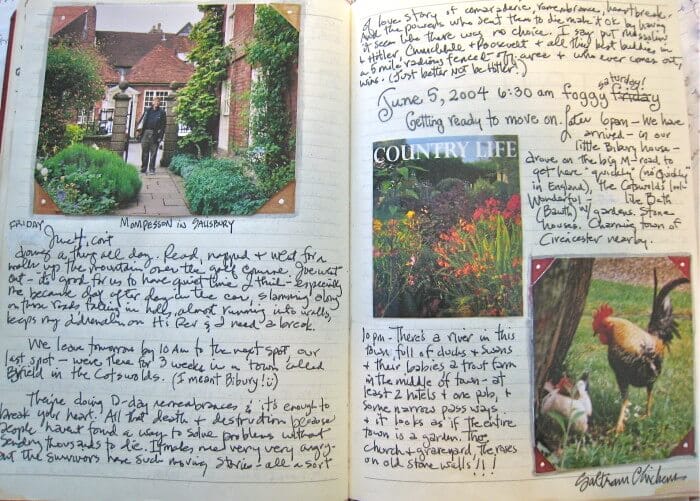 MOMPESSON IN SALISBURY
FRIDAY June 4, con't
doing a thing all day. Read, napped & went for a
walk up the mountain over the golf course. Joe went
out - it's good for us to have quiet time I think - especially
me because day after day in the car, slamming along
on those roads taking in hell, almost running into walls,
keeps my adrenalin on Hi Rev & I need a break.
We leave tomorrow by 10 AM to the next spot, our
last spot - were there for 3 weeks in a town called
Byfield in the Cotswolds. (I meant Bibury! ☺)
They're doing D-day remembrances & it's enough to
break your heart. All that death & destruction because
people haven't found a way to solve problems without
sending thousands to die. It makes me very very angry-
but the survivors have such moving stories - all a sort
of love story of comaraderie, remembrance, heartbreak.
And the powers who sent them to die make it ok by having
it seem like there was no choice. I say put Mussolini
& Hitler, Churchill & Roosevelt & all their best buddies in
a 5 mile radius fenced - in area & who ever comes out,
wins. (Just better not be Hitler!)
saturday!
June 5, 2004 6:30 am foggy friday
Getting ready to move on. Later 6pm - We have
arrived - in our
little Bibury house -
drove on the big M-road to
get here "quickly" (no "quickly"
in England), the Cotswolds look
Wonderful - like Bath
(Bauth) w/ gardens. Stone
houses. Charming town of
Cirencester nearby.
COUNTRY LIFE
10 pm - There's a river in this
town, full of ducks & swans
& their babies a trout farm
in the middle of town - at
least 2 hotels & one pub, &
some narrow pass ways
& it looks as if the entire
town is a garden. The
church & graveyard, the roses
on old stone walls!!!
Saltram Chickens